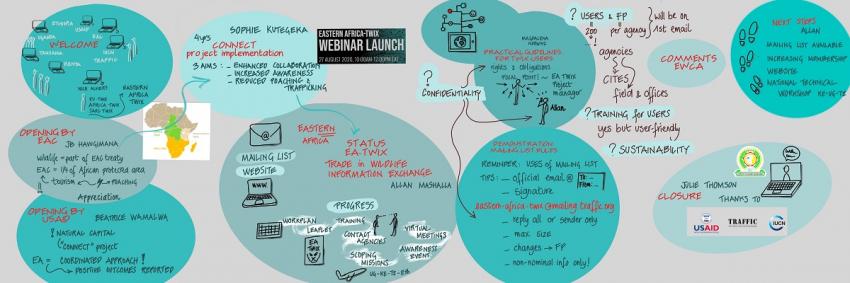 ETHIOPIA
USAID
UGANDA
EAC
TANZANIA
IUCN
WELCOME
KENYA
TRAFFIC
EASTERN
AFRICA
TWIX
EU-TWIX
AFRICA-TWIX
SADC-TWIX
OPENING BY
EAC
JB HAVUGIMANA
Wildlife = part of EAC treaty
EAC = 1/4 of African protected area
tourism
POACHING
Appreciation
OPENING BY
USAID
BEATRICE WAMALWA
! NATURAL CAPITAL
"CONNECT" project
EA = COORDINATED APPROACH !
POSITIVE OUTCOMES REPORTED
SOPHIE KUTEGEKA
4yrs
CONNECT
project implementation
3 AIMS : - ENHANCED COLLABORATION
- INCREASED AWARENESS
- REDUCED POACHING &
TRAFFICKING
EASTERN AFRICA-TWIX
WEBINAR LAUNCH
27 AUGUST 2020, 10:00AM-12:00PM EAT
EASTERN
AFRICA
STATUS
EA-TWIX
TRADE IN WILDLIFE
INFORMATION EXCHANGE
ALLAN MASHALLA
MAILING LIST
WEBSITE
WWW
PROGRESS
WORKPLAN
LEAFLET
EA
TWIX
TRAINING
CONTACT
AGENCIES
SCOPING
MISSIONS
VIRTUAL
MEETINGS
AWARENESS
EVENT
UG-KE-TZ-Eth
MAGDALENA
PRACTICAL GUIDELINES
FOR TWIX USERS
rights & obligations
FOCAL POINT!
EA TWIX
Project
manager
Allan
?
CONFIDENTIALITY
DEMONSTRATION
MAILING LIST RULES
REMINDER: USES OF MAILING LIST
TIPS : - official email @
TO:
FROM:
- signature
eastern-africa-twix@mailing.traffic.org
- reply all or sender only
- max size
- changes → FP
- non-nominal info only!
? USERS & FP
200 per agency
will be on
1st email
agencies
CITES
field & offices
? TRAINING FOR USERS
yes but user-friendly
? SUSTAINABILITY
COMMENTS
EWCA
NEXT STEPS
ALLAN
MAILING LIST AVAILABLE
INCREASING MEMBERSHIP
WEBSITE
NATIONAL TECHNICAL
WORKSHOP KE-UG-TZ
JULIE THOMSON
CLOSURE
THANKS TO
USAID
TRAFFIC
IUCN